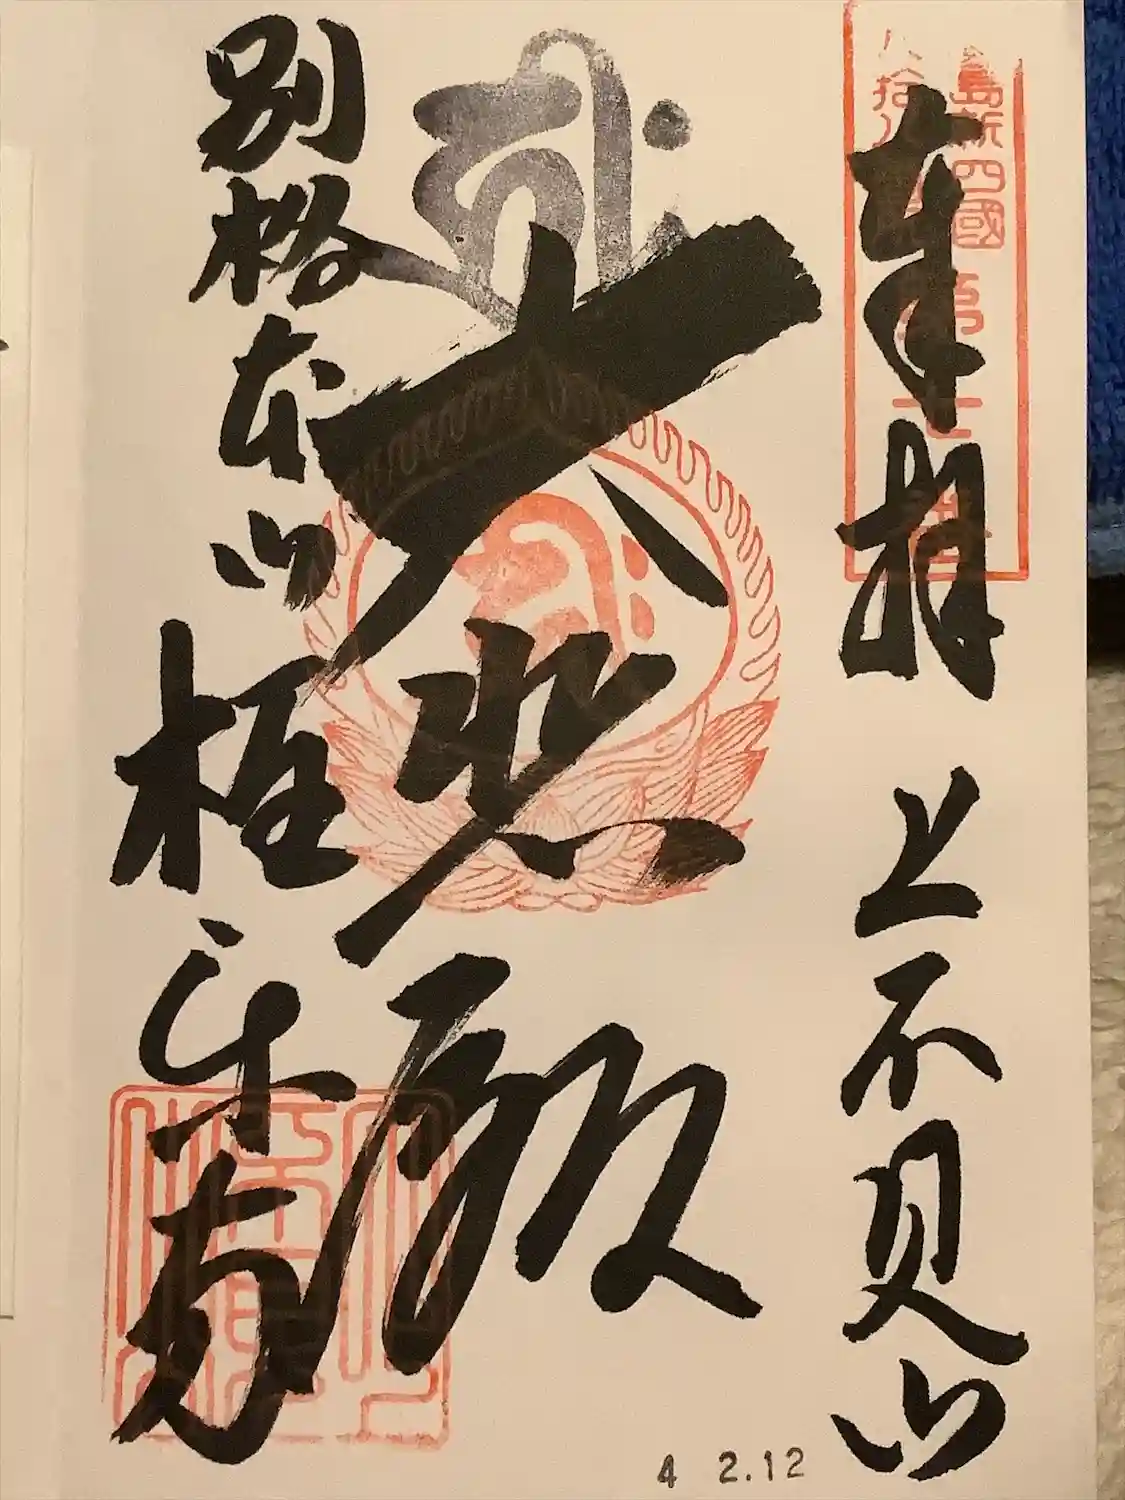 奉拝 上不見山
島新四國
八拾八
大悲殿
別格本山 極楽寺
4 2.12